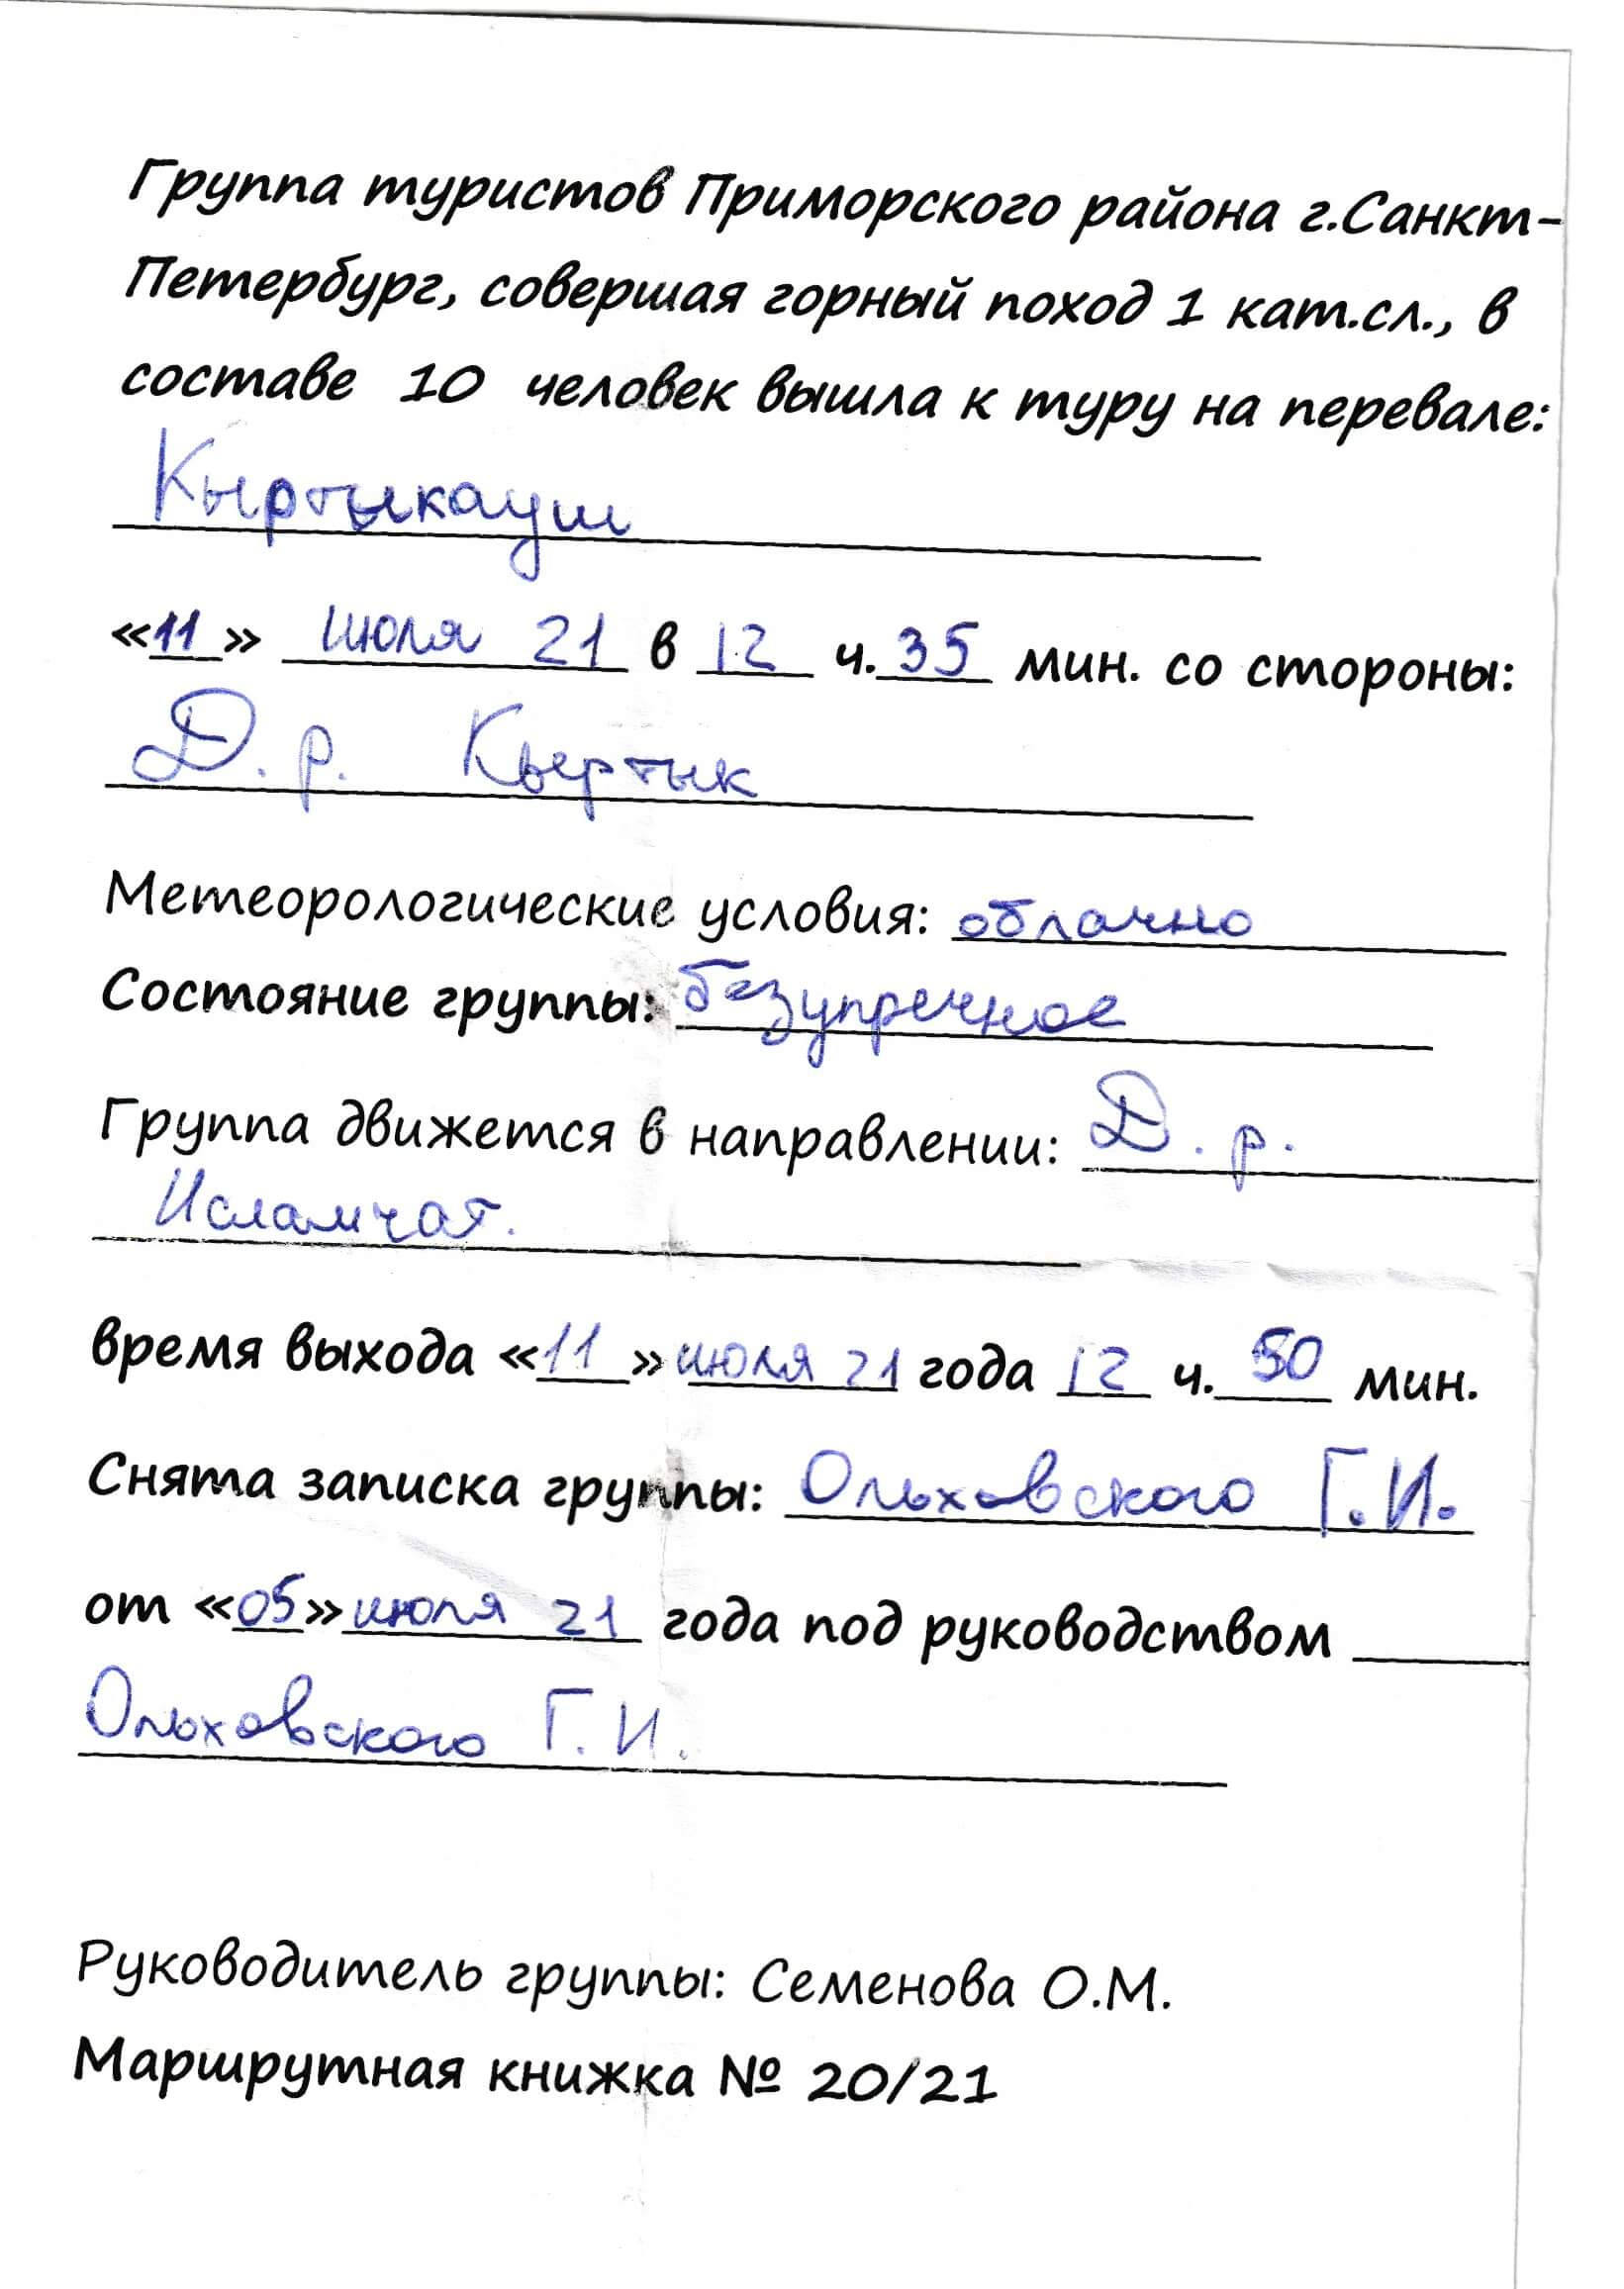 Группа туристов Приморского района г.Санкт-
Петербург, совершая горный поход 1 кат.сл., в
составе 10 человек вышла к туру на перевале:
Кыртыкауш
«11» июля 21 в 12 ч. 35 мин. со стороны:
Д. р. Кыртык
Метеорологические условия: облачно
Состояние группы: безупречное
Группа движется в направлении: Д. р.
Исламчат.
время выхода «11» июля 21 года 12 ч. 50 мин.
Снята записка группы: Ольховского Г.И.
от «05» июля 21 года под руководством
Ольховского Г. И.
Руководитель группы: Семенова О.М.
Маршрутная книжка № 20/21